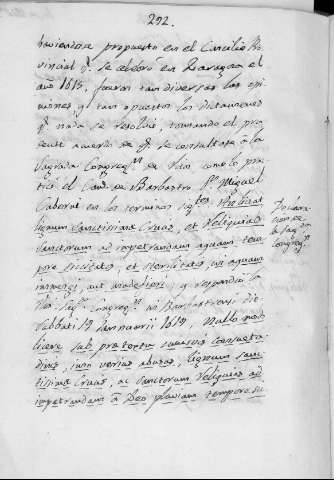 292.
haviendose propuesto en el Concilio Pro
vincial q. se celebró en Zaragoza el
año 1615, fueron tan diversas las opi
niones y tan opuestos los Dictamenes
q. nada se resolvió, tomando el pru
dente acuerdo de q. se consultase a la
Sagrada Congreg.n
el Can.o de Barbastro D.n Miguel
en los terminos sig.tes
lignum Sanctissimæ Crucis, et Reliquias
Sanctorum ad impetrandam aquam tem
pore siccitatis, et sterilitatis, in aquam
immergi, aut madefieri; y respondió la
Sag.a Congreg.n in Barbastrens. die
Sabbati 19 Januarii 1619. Nullo mo
licere sub prætextu cujusvis consuetu
dinis, imo verius abusus, lignum Sanc
tissimæ Crucis, ac Sanctorum Reliquias ad
impetrandam a Deo pluviam tempore
Declara
cion de
la Sag.da
Congreg.n